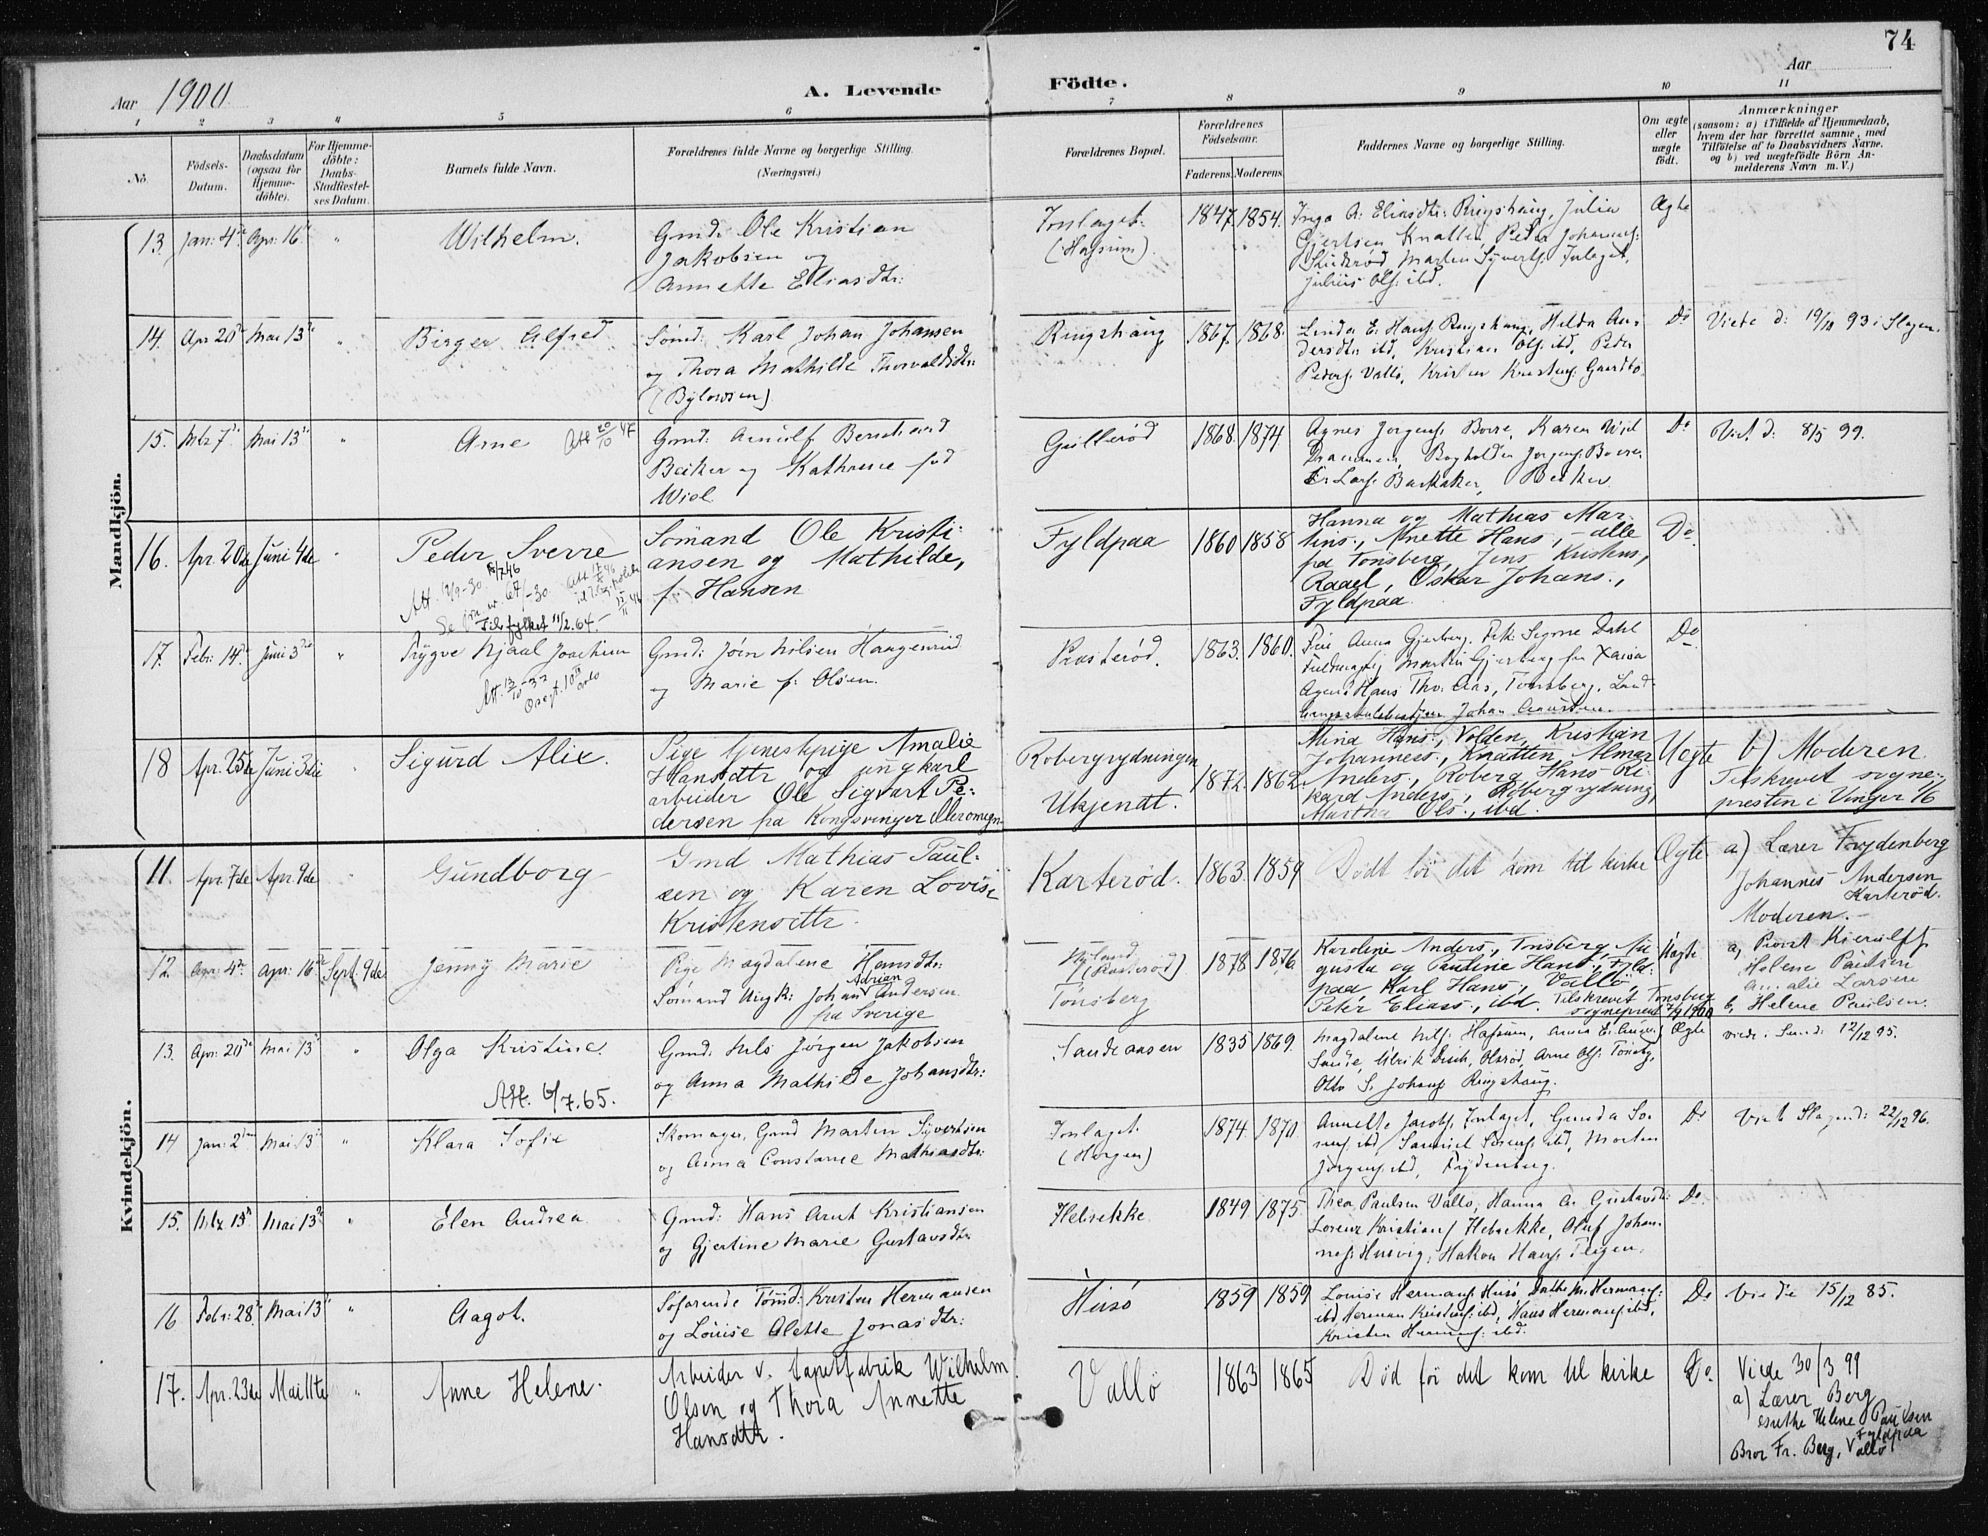 74
Aar 1900
A. Levende Födte.
Aar
1 2 3 4 5 6 7 8 9 10 11
No.
Födsels-Datum.
Daabsdatum (ogsaa for Hjemme-döbte).
For Hjemme-döbte: Daabs-Stadfæstel-ses Datum.
Barnets fulde Navn.
Forældrenes fulde Navne og borgerlige Stilling.
(Næringsvei.)
Forældrenes Bopæl.
Forældrenes Födselsaar.
Faderens. Moderens.
Faddernes Navne og borgerlige Stilling.
Om ægte eller uægte födt.
Anmærkninger
(saasom: a) i Tilfælde af Hjemmedaab,
hvem der har forrettet samme, med
Tilföielse af to Daabsvidners Navne.
og b) ved uægtefödte Börn An-
melderens Navn m. V.)
Mandkjön.
13. Jan: 4de Apr: 16de " Wilhelm.
Gmd: Ole Kristian
Jakobsen og
Annette Eliasdtr:
(Hafsum).
1847. 1854.
Ringshaug, Julia
Gjertsen Knatten, Peder Johannes:
Julius Ols: ibd.
Ægte
14. Apr 20de Mai 13de " Birger Alfred
Sømd: Karl Johan Johansen
og Thora Mathilde Thorvaldsdtr:
Ringshaug 1867. 1868.
Linda E. Hans: Ringshaug, Hilda An-
dersdtr ibd, Kristian Ols: ibd, Peder
Peders: Vallø, Kristen Kristens:
Do
Viede d: 19/10 93 i Slagen.
15. Mrz 7de Mai 13de " Arne Att 20/10 47
Gmd: Arnulf Bernhard
Becker og Kathrine fød
Wiel
Gullerød 1868. 1874
Agnes Jørgens: Borre, Karen Wiel
Drammen, Bogholder Jørgens: Borre
Lars: Bakkaker, Becker
Do
Viet d: 8/5 99.
16. Apr. 20de Juni 4de " Peder Sverre
Att. 12/9-30.
Se
Til fylket 11/2.64.
Sømand Ole Kristi-
ansen og Mathilde,
f. Hansen
Fyldpaa 1860 1858
Hanna og Mathias Mar-
tins., Anette Hans., - alle
fra Tønsberg, Jens Kristens.,
Raael, Oskar Johans.,
Fyldpaa.
Do
17. Febr: 14de Juni 3de " Trygve Njaal Joachim
Gmd: Jørn Nilsen Haugenrud
og Marie f: Olsen.
Rosterød. 1863. 1860.
Anna Gjerberg, Frk: Signe Dahl
Fuldmægtig Martin Gjerberg
Agent Hans Tho: Aas, Tønsberg, Land-
Johan
Do
18 Apr. 25de Juni 3die " Sigurd Alix.
Pige tjenestepige Amalie
Hansdtr og ungkarl
arbeider Ole Sigvart Pe-
dersen fra Kongsvinger
Robergrydningen
Ukjendt.
1872. 1862.
Mina Hans., Volden, Kristian
Johanness., Knatten, Almar
Anders., Roberg, Hans Ri-
kard Anders., Robergrydning,
Martha Ols., ibd.
Uegte
b) Moderen.
Tilskrevet sogne-
presten i Vinger
Kvindekjön.
11. Apr. 7de Apr. 9de " Gundborg
Gmd Mathias Paul-
sen og Karen Lovise
Kristensdtr.
Karterød. 1863. 1859
Dødt før det kom til kirke
Ægte
a) Lærer Frydenberg
Johannes Andersen
Karterød.
Moderen.
12 Apr: 4de Apr: 16de Sept. 9de Jenny Marie
Pige Magdalene Hansdtr:
Sømand Ungk: Johan Adrian Andersen
fra Sverige
(Rosterød)
Tønsberg
1878 1876.
Karoline Anders., Tønsberg, Au-
gusta og Pauline Hans., Fyld-
paa Karl Hans., Vallø,
Peter Eliass., ibd. Tilskrevet Tønsberg
sogneprest
Uægte
a) Provst Kierulf
Helene Paulsen
Amalie Larsen
b, Helene Paulsen.
13. Apr: 20de Mai 13de " Olga Kristine.
Att. 6/7.65.
Gmd: Nils Jørgen Jakobsen
og Anna Mathilde Johansdtr:
Sandeaasen 1835 1869.
Magdalene Nils: Hafsum,
Olsrød, Arne Ols: Tønsberg,
Otto S. Johans: Ringshaug.
Ægte
12/12 95.
14 Jan: 2den Mai 13de " Klara Sofie
Skomager, Gmd Martin Syvertsen
og Anna Constance Mathiasdtr:
(Horgen)
1874. 1870.
Annette Jacobs:
Samuel Sørens: ibd, Morten
Jørgens: ibd, Frydenberg.
Do
Viet Slagen d: 22/12 96.
15. Mrz 13de Mai 13de " Elen Andrea
Gmd: Hans Arnt Kristiansen
og Gjertine Marie Gustavsdtr:
Helsekke. 1849 1875.
Thea Paulsen Vallø, Hanna A. Gustavsdtr:
Lorenz Kristians: Helsekke, Oluf Johan-
nes: Husvig, Hakon Hans:
Do.
16 Febr: 28de Mai 13de " Aagot.
Søfarende Tømd: Kristen Hermansen
og Louise Alette Jonasdtr:
Husø 1859 1859
Louise Hermans: Husø, Dorthe M. Hermans:
ibd, Herman Kristens: ibd, Hans Hermans: ibd,
Kristen Hermans: ibd.
Do
Viede 15/12 85.
17. Apr. 23de Mai 11te " Anne Helene.
Arbeider v. tapetfabrik Wilhelm
Olsen og Thora Annette
Hansdtr.
Vallö 1863 1865
Död för det kom til kirke
Do
Viede 30/3 99
a) Lærer Berg
enke Helene Paulsen
Fyldpaa
Bror Fr. Berg, Vallø